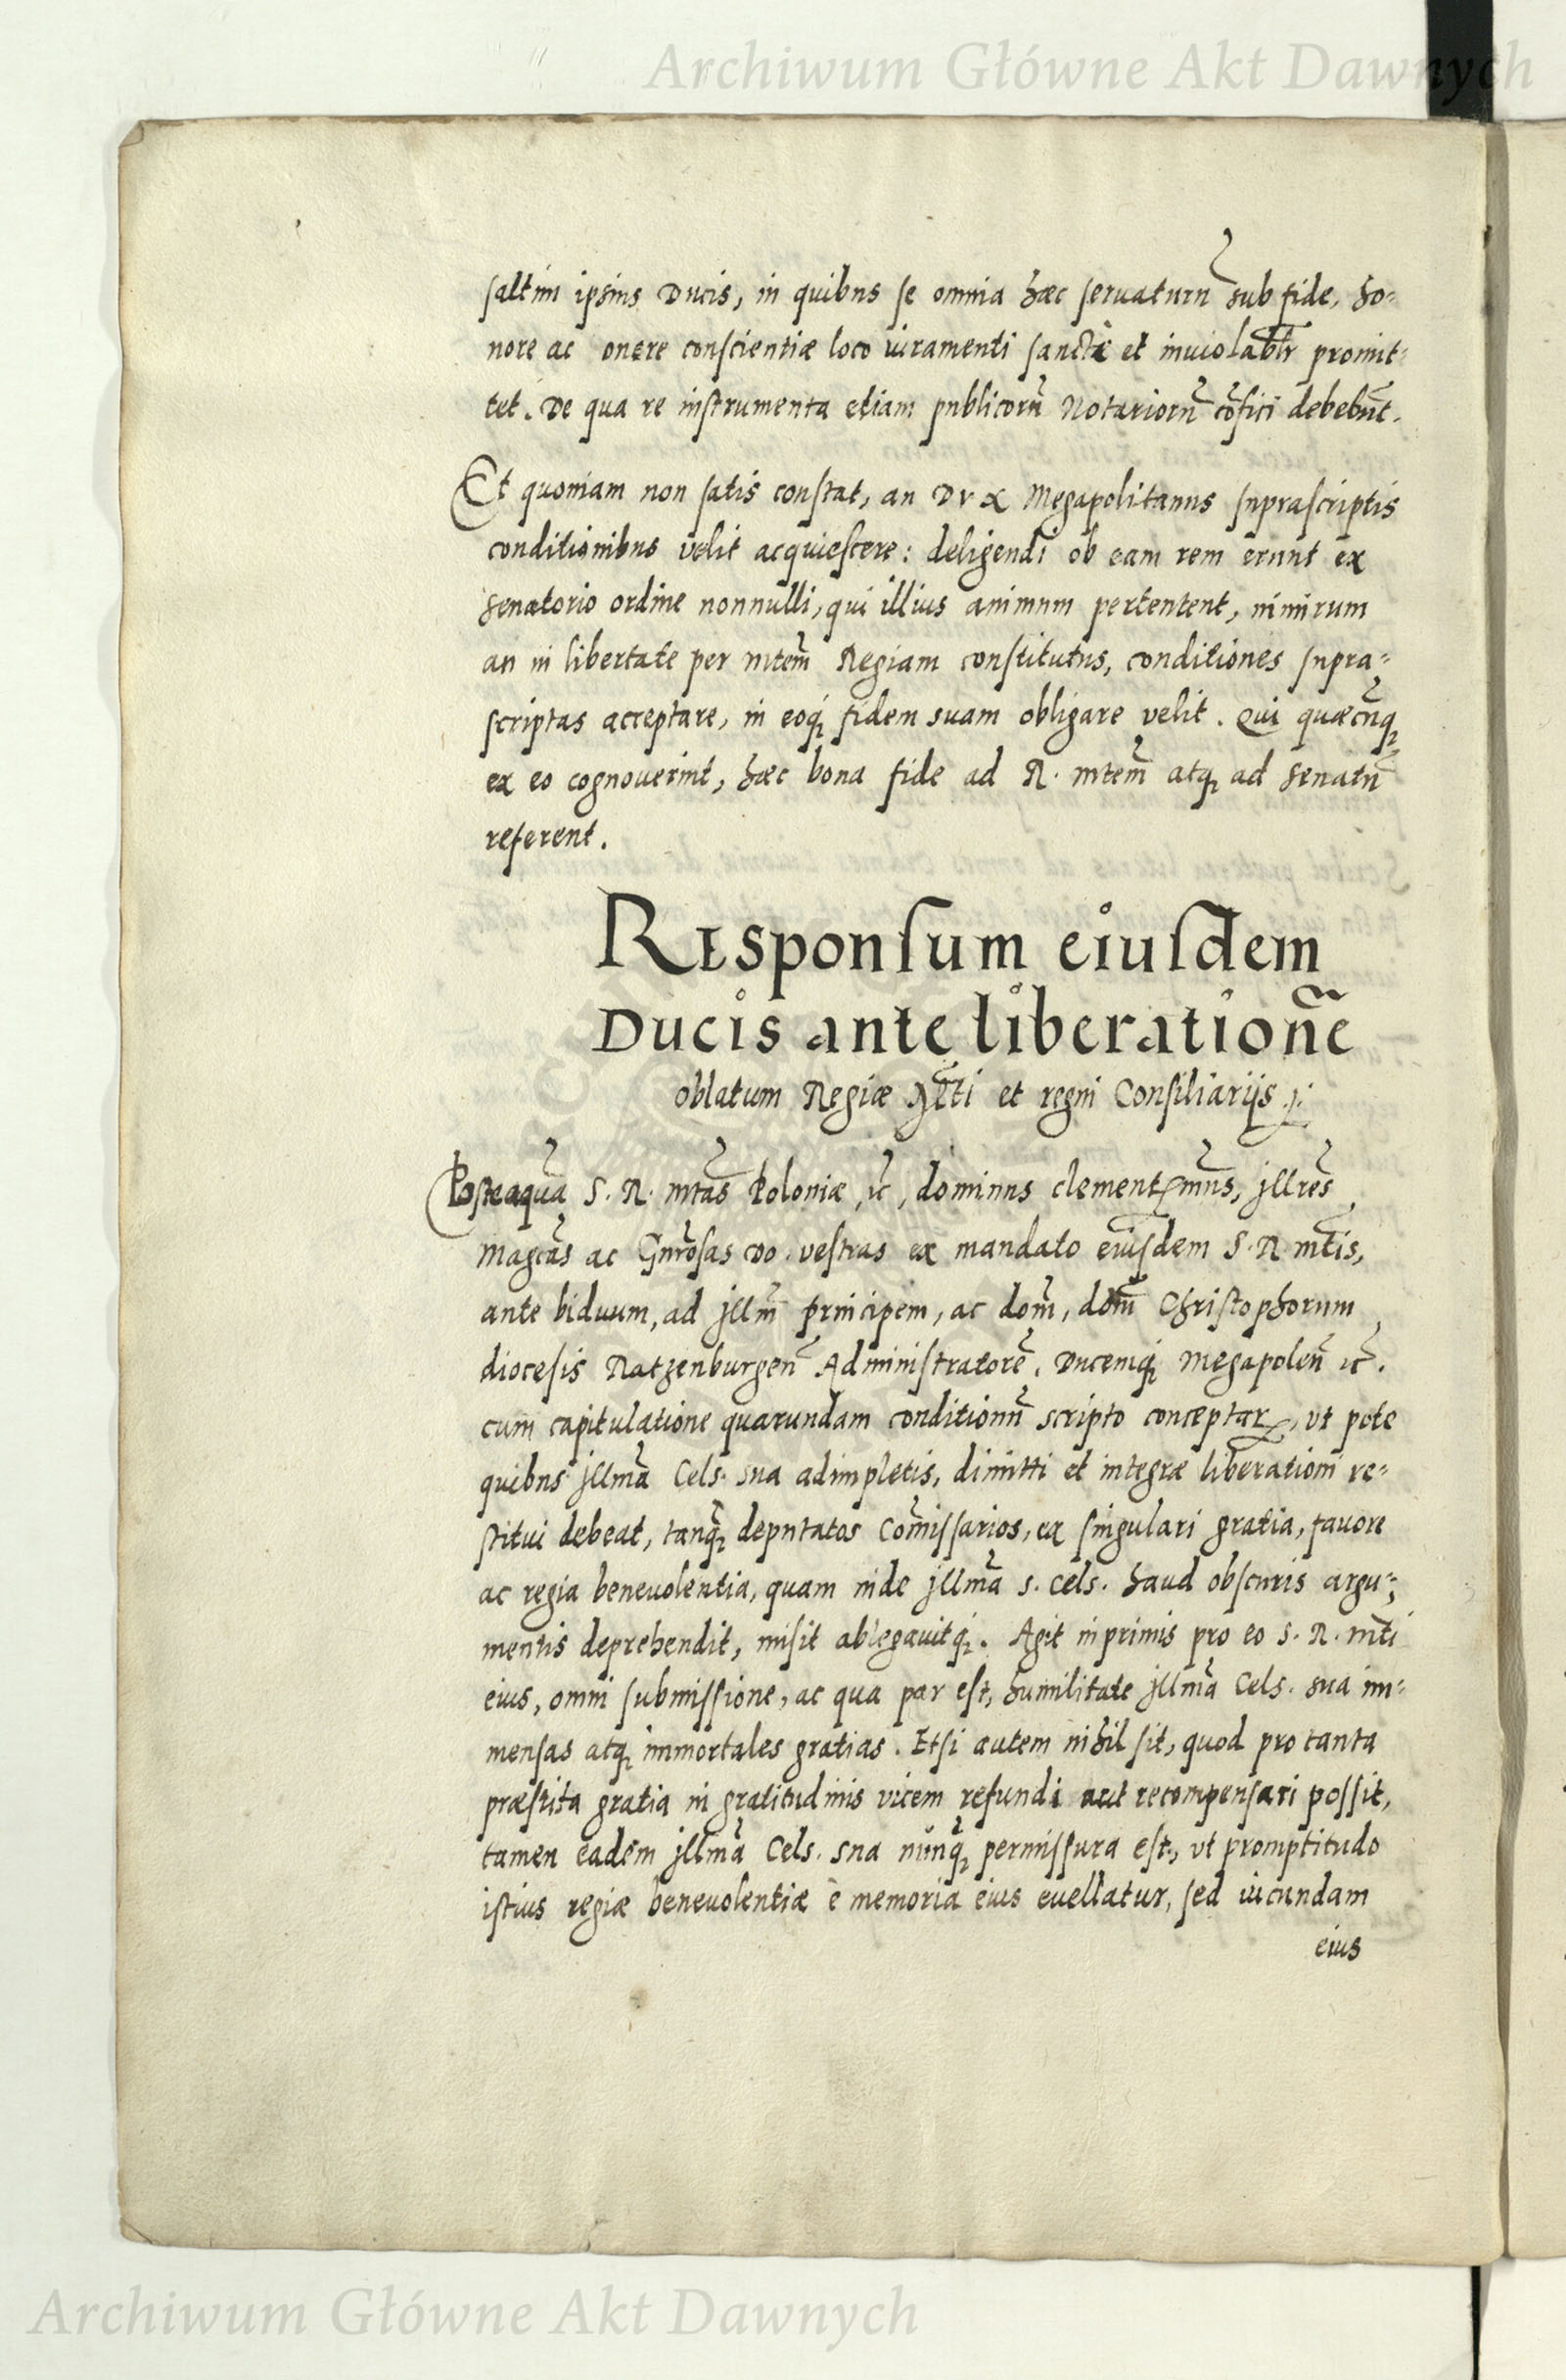 Archiwum Główne Akt Dawnych
saltim ipsius Ducis, in quibus se omnia hæc seruaturũ sub fide, ho⸗
nore ac onere conscientiæ loco iuramenti sanctè et inuiolablr̃ promit⸗
tet. De qua re instrumenta etiam publicorũ Notariorũ cõfici debebũt.
Et quoniam non satis constat, an Dux Megapolitanus suprascriptis
conditionibus velit acquiescere: deligendi ob eam rem erunt ex
senatorio ordine nonnulli, qui illius animum pertentent, nimirum
an in libertate per mtem̃ Regiam constitutus, conditiones supra⸗
scriptas acceptare, in eoq́ꝫ fidem suam obligare velit. Qui quæcũqꝫ
ex eo cognouerint, hæc bona fide ad R. mtem̃ atqꝫ ad senatũ
referent.
Responsum eiusdem
Ducis ante liberationẽ
oblatum Regiæ Mt̃ti et regni Consiliarijs ⁊.
Posteaquã S. R. mtãs Poloniæ, ⁊c̃, dominus clementꝭmũs, jllrẽs
Magcãs ac Gnrõsas Do. vestras ex mandato eiusdem S. R. mt̃is,
ante biduum, ad jllm̃ principem, ac dom̃, dom̃ Christophorum
diocesis Ratzenburgen̄ Administratorẽ, Ducemq́ꝫ Megapolen̄ ⁊c̃.
cum capitulatione quarundam conditionũ scripto conceptarꝝ, vt pote
quibus jllmã Cels. sua adimpletis, dimitti et integræ liberationi re⸗
stitui debeat, tanq̃ꝫ deputatos Com̃issarios, ex singulari gratia, fauore
ac regia beneuolentia, quam inde jllmã S. Cels. haud obscuris argu⸗
mentis deprehendit, misit ablegauitq́ꝫ. Agit inprimis pro eo S. R. mt̃i
eius, omni submissione, ac qua par est, humilitate jllmã Cels. sua im⸗
mensas atqꝫ immortales gratias. Etsi autem nihil sit, quod pro tanta
præstita gratia in gratitudinis vicem refundi aut recompensari possit,
tamen eadem jllmã Cels. sua nũnq̃ꝫ permissura est, vt promptitudo
istius regiæ beneuolentiæ è memoria eius euellatur, sed iucundam
eius
Archiwum Główne Akt Dawnych